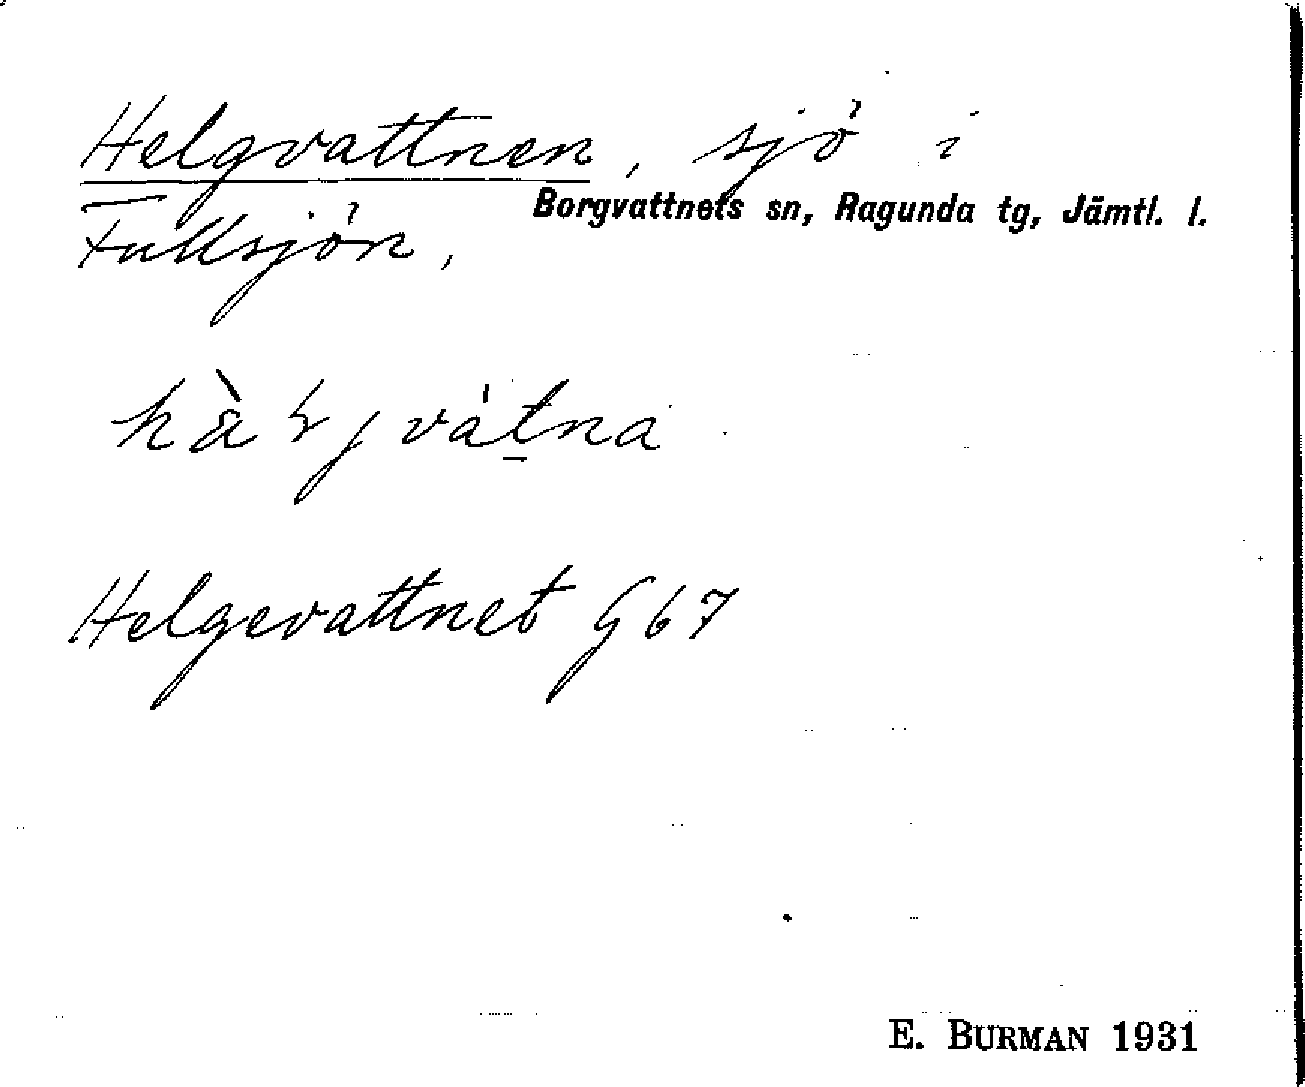 Helgvattnen, sjö i
Borgvattnets sn, Ragunda tg, Jämtl. l.
Fullsjön,
Helgevattnet G67
E. BURMAN 1931